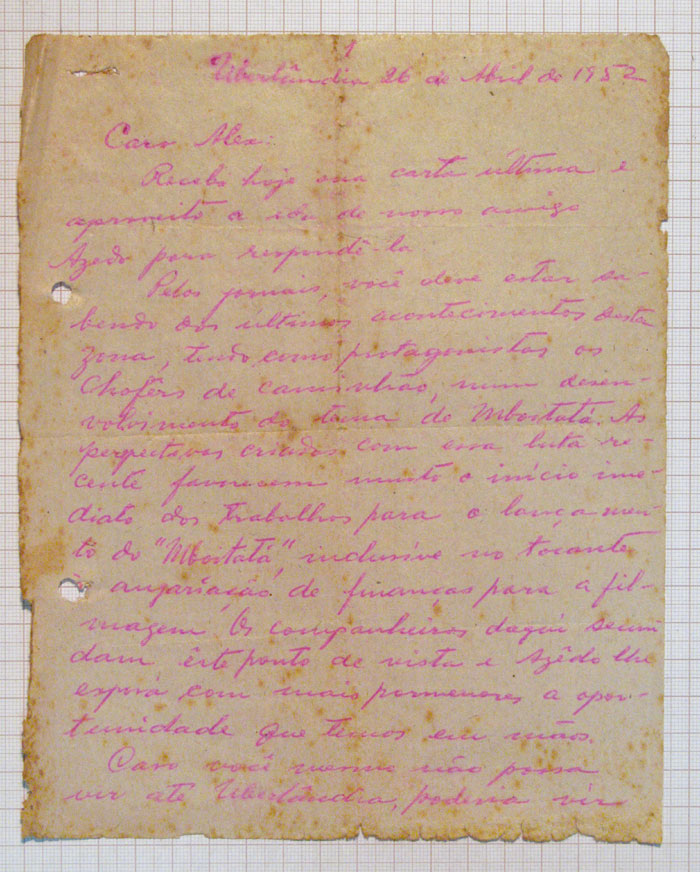 1
Uberlândia 26 de Abril de 1952
Caro Alex:
Recebi hoje sua carta última e
aproveito a ida de nosso amigo
Azedo para respondê-la
Pelos jornais, você deve estar sa-
bendo dos últimos acontecimentos desta
zona, tendo como protagonistas os
Chofêrs de caminhão, num desen-
volvimento do tema de Mboitatá. As
perpectivas criadas com essa luta re-
cente favorecem muito o início ime-
diato dos trabalhos para o lançamen-
to do "Mboitatá", inclusive no tocante
angariação de finanças para a fil-
magem. Os companheiros daqui secun-
dam êste ponto de vista e Azêdo lhe
exporá com mais pormenores a opor-
tunidade que temos em mãos.
Caso você mesmo não possa
vir até Uberlândia, poderia vir